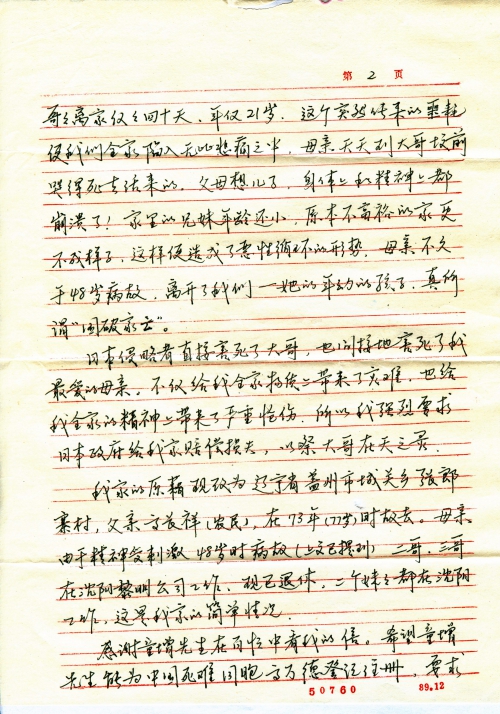 第 2 页
哥哥离家仅仅四十天、年仅21岁. 这个突然传来的噩耗
使我们全家陷入无比悲痛之中, 母亲天天到大哥坟前
哭得死去活来的. 父母想儿子, 身体上和精神上都
崩溃了! 家里的兄妹年龄还小, 原本不富裕的家更
不成样子, 这样便造成了恶性循环的形势, 母亲不久
于48岁病故, 离开了我们一把的年幼的孩子, 真所
谓“国破家亡”.
日本侵略者直接害死了大哥, 也间接地害死了我
最爱的母亲. 不仅给我全家物质上带来了灾难, 也给
我全家的精神上带来了严重怆伤. 所以我强烈要求
日本政府给我家赔偿损失, 以祭大哥在天之灵.
我家的原籍现改为辽宁省盖州市城关乡张郎
寨村, 父亲 长祥(农民), 在73年(77岁)时故去. 母亲
由于精神受刺激 48岁时病故(上文已提到) 二哥. 三哥
在沈阳黎明公司工作. 现已退休. 二个妹妹都在沈阳
工作, 这是我家的简单情况.
感谢童增先生在百忙中看我的信. 希望童增
先生能为中国死难同胞 万德登记注册, 要求
50760 89.12